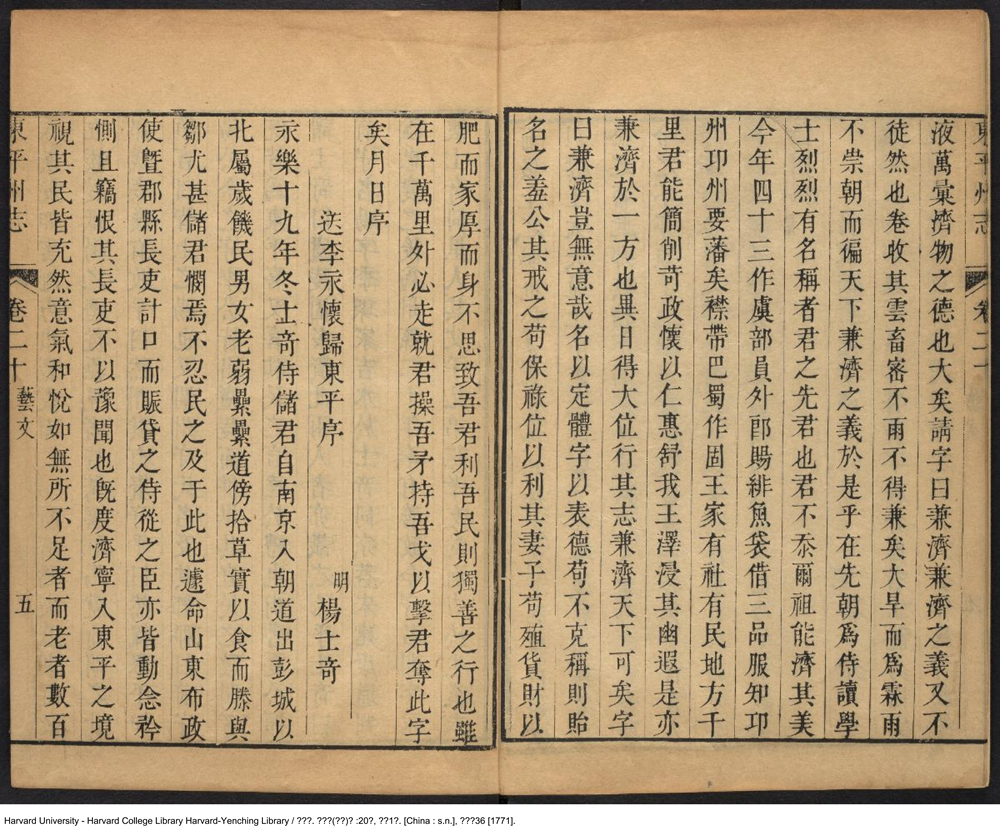 東平州志 卷二十
液萬彙濟物之德也大矣請字曰兼濟兼濟之義又不
徒然也卷收其雲畜密不雨不得兼矣大旱而爲霖雨
不崇朝而徧天下兼濟之義於是乎在先朝爲侍讀學
士烈烈有名稱者君之先君也君不忝爾祖能濟其美
今年四十三作虞部員外郎賜緋魚袋借三品服知卭
州卭州要藩矣襟帶巴蜀作固王家有社有民地方千
里君能簡削苛政懷以仁惠舒我王澤浸其幽遐是亦
兼濟於一方也異日得大位行其志兼濟天下可矣字
曰兼濟豈無意哉名以定體字以表德苟不克稱則貽
名之羞公其戒之苟保祿位以利其妻子苟殖貨財以
肥而家厚而身不思致吾君利吾民則獨善之行也雖
在千萬里外必走就君操吾矛持吾戈以擊君奪此字
矣月日序
送李永懷歸東平序 明 楊士奇
永樂十九年冬士奇侍儲君自南京入朝道出彭城以
北屬歲饑民男女老弱纍纍道傍拾草實以食而滕與
鄒尤甚儲君憫焉不忍民之及于此也遽命山東布政
使曁郡縣長吏計口而賑貸之侍從之臣亦皆動念矜
惻且竊恨其長吏不以豫聞也旣度濟寧入東平之境
視其民皆充然意氣和悅如無所不足者而老者數百
東平州志 卷二十 藝文 五
Harvard University - Harvard College Library Harvard-Yenching Library / ???. ???(??)? :20?, ??1?. [China : s.n.], ???36 [1771].